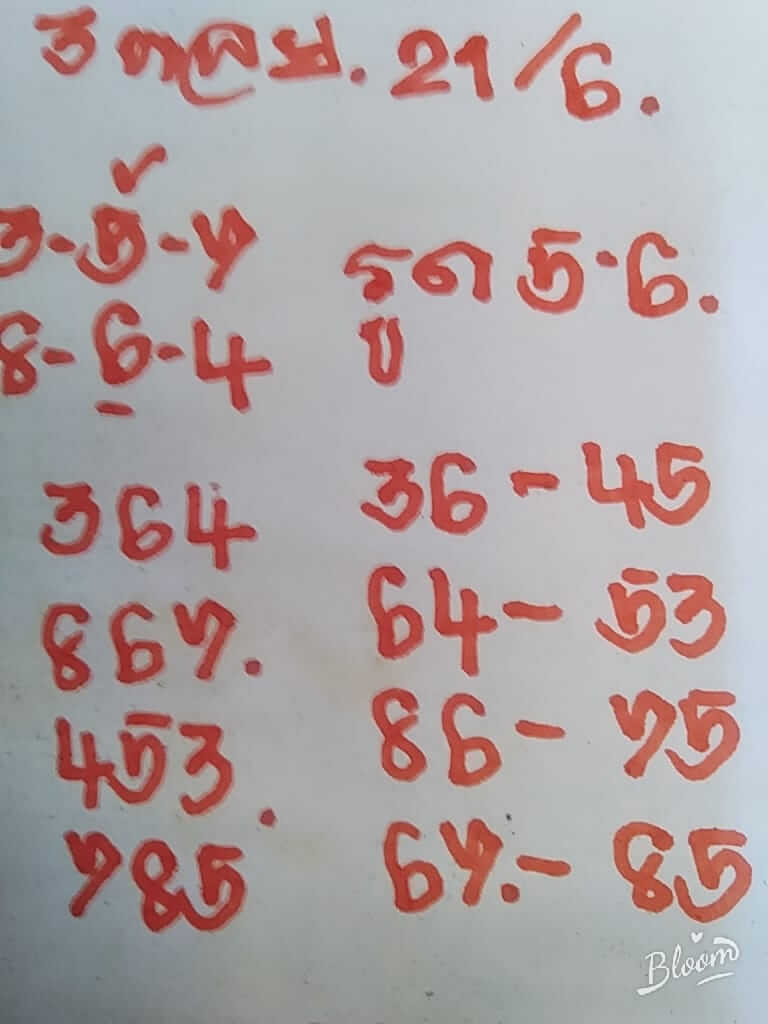 3 ตลย. 21/6.
3-5-7
รูด 5-6.
8-6-4
364
36-45
867.
64-53
453.
86-75
785
67.-85
Bloom